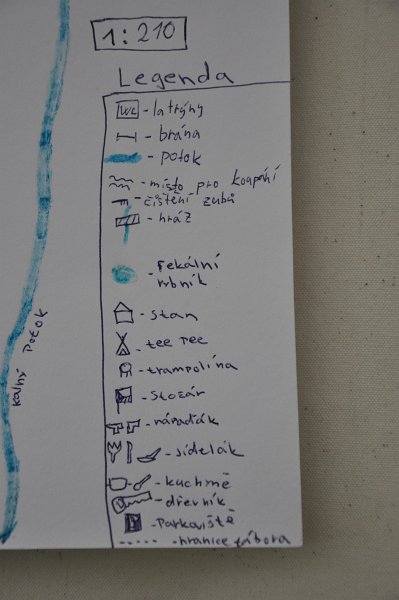 1:210
Legenda
WC - latríny
- brána
- potok
- místo pro koupání
- čištění zubů
- hráz
- Fekální
rybník
- stan
- tee pee
- trampolína
- stožár
- nářaďák
- jídelák
- kuchyně
- dřevník
P - Parkoviště
- hranice tábora
kalný potok